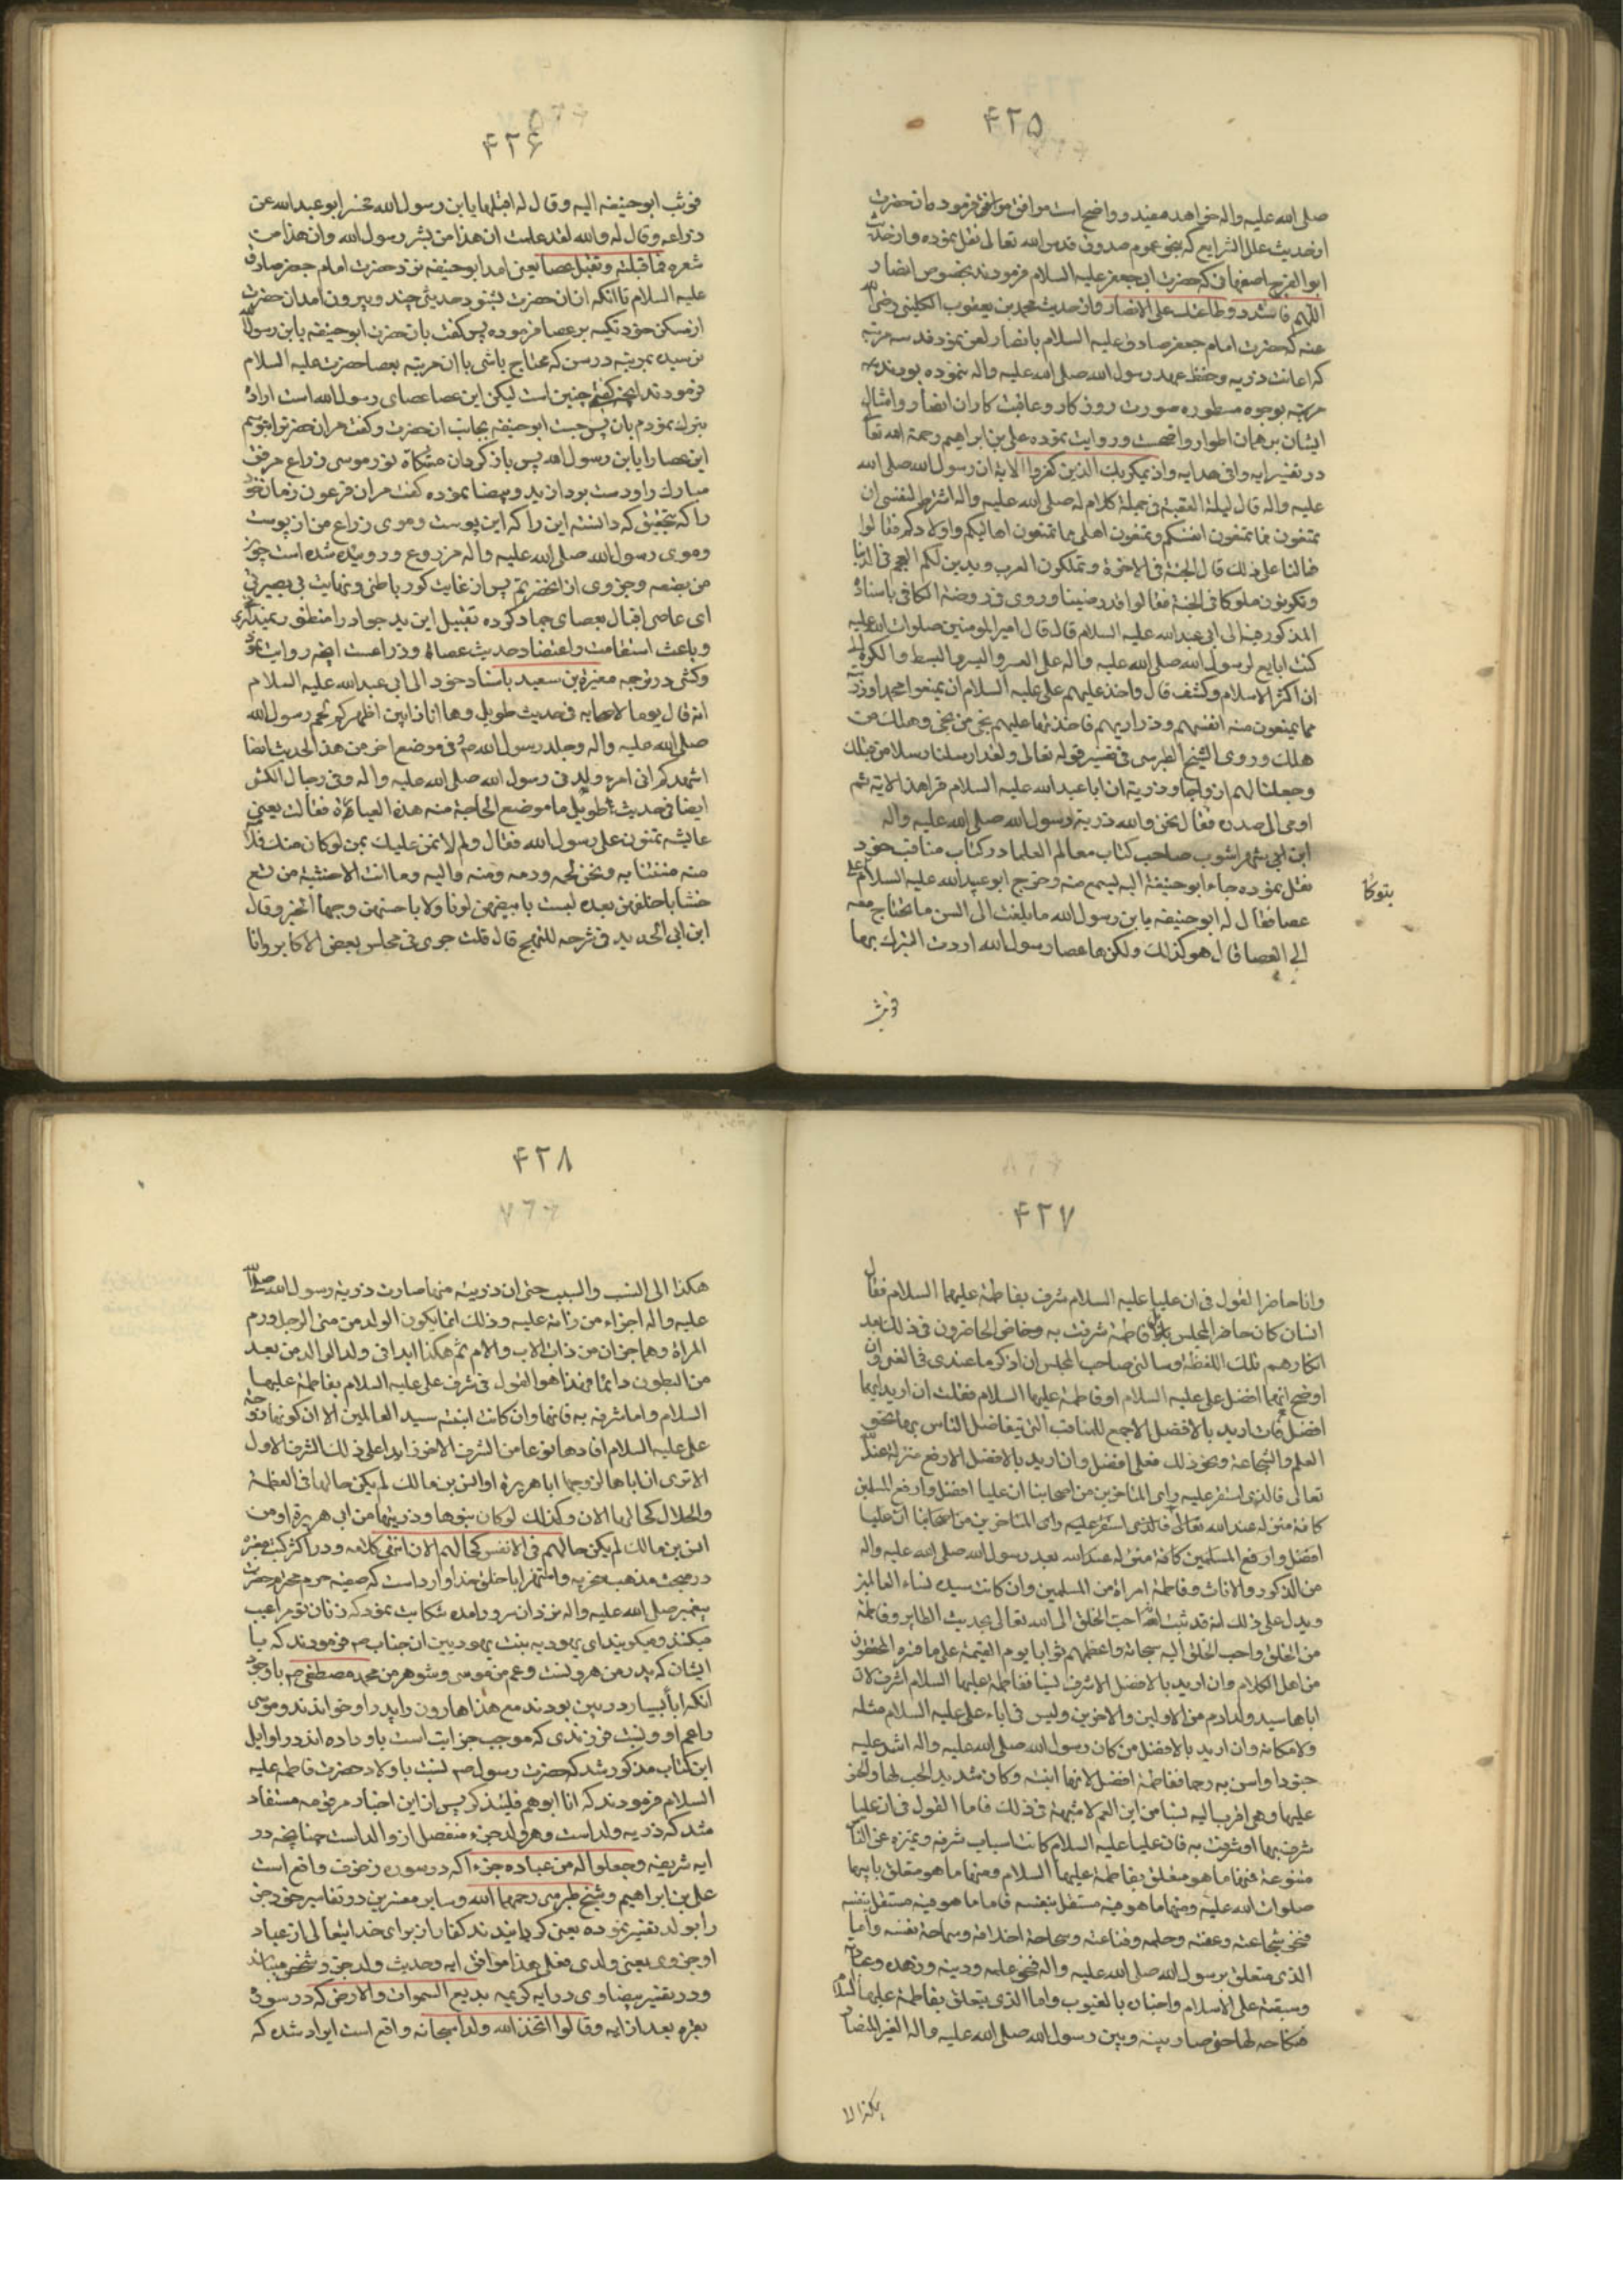 ۴۲۵
صلی الله علیه واله خواهد مفید و واضح است موافق فرموده ان حضرت
از حدیث علل الشرایع که بنحو عموم صدوق قدس الله تعالی نقل نموده و از حدیث
ابو الفرج اصفهانی که حضرت ابی جعفر علیه السلام فرمودند بخصوص انصار
اللهم فاشدد وطاءتك علی الانصار و از حدیث محمد بن یعقوب الکلینی رضی الله
عنه که حضرت امام جعفر صادق علیه السلام بانصار لعن نمود قد سه مرتبه
که اعانت ذریه و حفظ عهد رسول الله صلی الله علیه واله ننموده بودند سه
مرتبه بوجوه مسطوره صورت روزکار و عاقبت کار ان انصار و امثال
ایشان بر همان اطوار واضحست و روایت نموده علی بن ابراهیم رحمة الله تعا
در تفسیر ایه وافی هدایه واذ یمکر بك الذین کفروا الایة ان رسول الله صلی الله
علیه واله قال لیلة العقبة فی جملة کلام له صلی الله علیه واله اشترط لنفسی ان
تمنعون مما تمنعون انفسکم و تمنعون اهلی مما تمنعون اهالیکم واولادکم فقالوا
فما لنا علی ذلك قال الجنة فی الاخرة و تملکون العرب و یدین لکم العجم فی الدنیا
وتکونون ملوکا فی الجنة فقالوا قد رضینا و روی فی روضة الکافی باسناده
المذکور فیه الی ابی عبد الله علیه السلام قال قال امیر المومنین صلوات الله علیه
کنت ابایع لرسول الله صلی الله علیه واله علی العسر والیسر والبسط والکره الی
ان اکثر الاسلام وکشف قال واخذ علیهم علی علیه السلام ان یمنعوا محمدا وذریته
مما یمنعون منه انفسهم وذراریهم فاخذتها علیهم نجی من نجی وهلك من
هلك و روی الشیخ الطبرسی فی تفسیر قوله تعالی ولقد ارسلنا رسلا من قبلك
وجعلنا لهم ازواجا وذریة ان ابا عبد الله علیه السلام قرا هذه الایة ثم
اومی الی صدره فقال نحن والله ذریة رسول الله صلی الله علیه واله
ابن ابی شهراشوب صاحب کتاب معالم العلما در کتاب مناقب خود
نقل نموده جاء ابو حنیفة الیه لیسمع منه وخرج ابو عبد الله علیه السلام علی
یتوکا
عصا فقال له ابو حنیفه یا بن رسول الله ما بلغت الی السن ما تحتاج معه
الی العصا قال هو کذلك ولکنها عصا رسول الله اردت التبرك بها
فوثب
۴۲۶
فوثب ابو حنیفه الیه وقال له اقبلها یا بن رسول الله فحسر ابو عبد الله عن
ذراعه وقال له والله لقد علمت ان هذا من بشر رسول الله وان هذا من
شعره فما قبلته وتقبل عصا یعنی امد ابو حنیفه نزد حضرت امام جعفر صادق
علیه السلام تا انکه از ان حضرت بشنود حدیثی چند و بیرون امد ان حضرت
از مسکن خود تکیه بر عصا فرموده پس کفت بان حضرت ابو حنیفه یا بن رسول الله
نرسیده بمرتبه در سن که محتاج باشی با ان مرتبه بعصا حضرت علیه السلام
فرمودند انچه کفتی چنین است لیکن این عصا عصای رسول الله است اراده
تبرك نمودم بان پس جست ابو حنیفه بجانب ان حضرت و کفت مر ان حضرترا ببوسم
این عصا را یا بن رسول الله پس باز کردان مشکاة نور موسی ذراع مرفق
مبارك را و دست بود ان ید و بیضا نموده کفت مر ان فرعون زمان خود
را که بتحقیق که دانسته این را که این پوست و موی ذراع من از پوست
و موی رسول الله صلی الله علیه واله مزروع و روییده شده است چون
من بضعه و جزوی از انحضرتم پس از غایت کور باطنی و نهایت بی بصیرتی
ای عاصی اقبال بعصای جماد کرده تقبیل این ید جواد را منظور نمیداری
و باعث استقامت و اعتضاد حدیث عصاء و ذراعست ایضه روایت نموده
وکشی در ترجمه مغیرة بن سعید باسناد خود الی ابی عبد الله علیه السلام
انه قال یوما لاصحابه فی حدیث طویل وها انا ذا بین اظهرکم لحم رسول الله
صلی الله علیه واله وجلد رسول الله ص و فی موضع اخر من هذا الحدیث ایضا
اشهدکم انی امرء ولدنی رسول الله صلی الله علیه واله و فی رجال الکشی
ایضا فی حدیث طویل ما موضع الحاجة منه هذه العبارة فقالت یعنی
عایشه تمنون علی رسول الله فقال ولم لا نمن علیك بمن لو کان منك قلادة
منه مننتنا به ونحن لحمه ودمه ومنه والیه وما انت الا حشیة من تسع
حشایا خلفهن بعده لست بابیضهن لونا ولا باحسنهن وجها الخبر وقال
ابن ابی الحدید فی شرحه للنهج قال قلت جری فی مجلس بعض الاکابر وانا
۴۲۷
وانا حاضر القول فی ان علیا علیه السلام شرف بفاطمة علیهما السلام فقال
انسان کان حاضر المجلس بل فاطمة شرفت به وخاض الحاضرون فی ذلك بعد
انکارهم تلك اللفظة وسالنی صاحب المجلس ان اذکر ما عندی فی المعنی وان
اوضح ایهما افضل علی علیه السلام او فاطمة علیها السلام فقلت ان ارید ایهما
افضل فان ارید بالافضل الاجمع للمناقب التی یتفاضل الناس بها نحو
العلم والشجاعة ونحو ذلك فعلی افضل وان ارید بالافضل الارفع منزلة عند الله
تعالی فالذی استقر علیه رای المتاخرین من اصحابنا ان علیا افضل وارفع المسلمین
کافة منزله عند الله تعالی فالذی استقر علیه رای المتاخرین من اصحابنا ان علیا
افضل وارفع المسلمین کافة منزله عند الله بعد رسول الله صلی الله علیه واله
من الذکور والاناث وفاطمة امراة من المسلمین وان کانت سیدة نساء العالمین
ویدل علی ذلك انه قد ثبت انه احب الخلق الی الله تعالی بحدیث الطایر وفاطمة
من الخلق واحب الخلق الیه سبحانه واعظمهم ثوابا یوم القیمة علی ما فسره المحققون
من اهل الکلام وان ارید بالافضل الاشرف نسبا ففاطمة علیها السلام اشرف لان
اباها سید ولد ادم من الاولین والاخرین ولیس فی اباء علی علیه السلام مثله
ولا مکانه وان ارید بالافضل من کان رسول الله صلی الله علیه واله اشد علیه
حنوا وامس به رحما ففاطمة افضل لانها ابنته وکان شدید الحب لها والحنو
علیها وهی اقرب الیه نسبا من ابن العم لا شبهة فی ذلك فاما القول فی ان علیا
شرف بها او شرفت به فان علیا علیه السلام کانت اسباب شرفه وتمیزه عن الناس
متنوعة فمنها ما هو متعلق بفاطمة علیها السلام ومنها ما هو متعلق بابیها
صلوات الله علیه ومنها ما هو فیه مستقل بنفسه فاما ما هو فیه مستقل بنفسه
فنحو شجاعته وعفته وحلمه وقناعته وسجاحة اخلاقه وسماحة نفسه واما
الذی متعلق برسول الله صلی الله علیه واله فنحو علمه ودینه وزهده وعبادته
وسبقته علی الاسلام واخباره بالغیوب واما الذی یتعلق بفاطمة علیها السلام
فنکاحه لها حتی صار بینه وبین رسول الله صلی الله علیه واله الغیر المضاف
هکذا الا
۴۲۸
هکذا الی النسب والسبب حتی ان ذریته منها صارت ذریة رسول الله صلی الله
علیه واله اجزاء من ذاته علیه وذلك انما یکون الولد من منی الرجل ودم
المراة وهما جزءان من ذات الاب والام ثم هکذا ابدا فی ولد الولد من بعد
من البطون دائما فهذا هو القول فی شرف علی علیه السلام بفاطمة علیها
السلام واما شرفه به فانها وان کانت ابنته سید العالمین الا ان کونها زوجة
علی علیه السلام افادها نوعا من الشرف الاخر زایدا علی ذلك الشرف الاول
الا تری ان اباها لو زوجها ابا هریرة او انس بن مالك لم یکن حالها فی العظمة
والجلال کحالها الان وکذلك لو کان بنوها وذریتها من ابی هریرة او من
انس بن مالك لم یکن حالهم فی الانفس کحالهم الان انتهی کلامه و در اکثر کتب معتبره
در مبحث مذهب سخریه و استهزا با خلق خدا وارد است که صفیه حرم محترم حضرت
پیغمبر صلی الله علیه واله نزد ان سرور امده شکایت نمود که زنان تو مرا عیب
میکنند و میکویند ای یهودیه بنت یهودیین ان جناب ص فرمودند که با
ایشان که پدر من هرونست و عم من موسی و شوهر من محمد مصطفی ص با وجود
انکه ابا بسیار در بین بودند مع هذا هارون را پدر او خواندند و موسی
را عم او و نسبت فرزندی که موجب جزاییت است باو داده اند در اوایل
این کتاب مذکور شد که حضرت رسول ص نسبت باولاد حضرت فاطمه علیه
السلام فرمودند که انا ابوهم فلیتذکر پس از این اخبار مرقومه مستفاد
شد که ذریه ولد است و هر ولد جزء منفصل از والد است چنانچه در
ایه شریفه وجعلوا له من عباده جزءا که در سوره زخرف واقع است
علی بن ابراهیم و شیخ طبرسی رحمهما الله و سایر مفسرین در تفاسیر خود جزء
را بولد تفسیر نموده یعنی کردانیدند کفار از برای خدایتعالی از عباد
او جزوی یعنی ولدی فعلی هذا موافق ایه و حدیث ولد جزء شخص میباشد
و در تفسیر بیضاوی در ایه کریمه بدیع السموات والارض که در سوره
بقره بعد از ایه وقالوا اتخذ الله ولدا سبحانه واقع است ایراد شده که